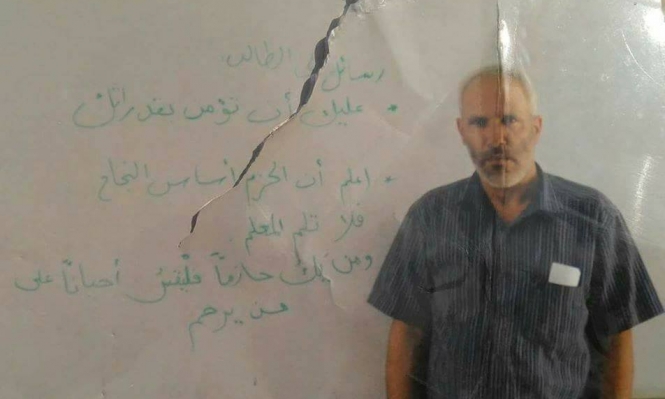 رسائل إلى الطالب
* عليك أن تؤمن بقدراتك
* اعلم أن الحزم أساس النجاح
فلا تلم المعلم
ومن يك حازماً فليقس أحياناً على
من يرحم